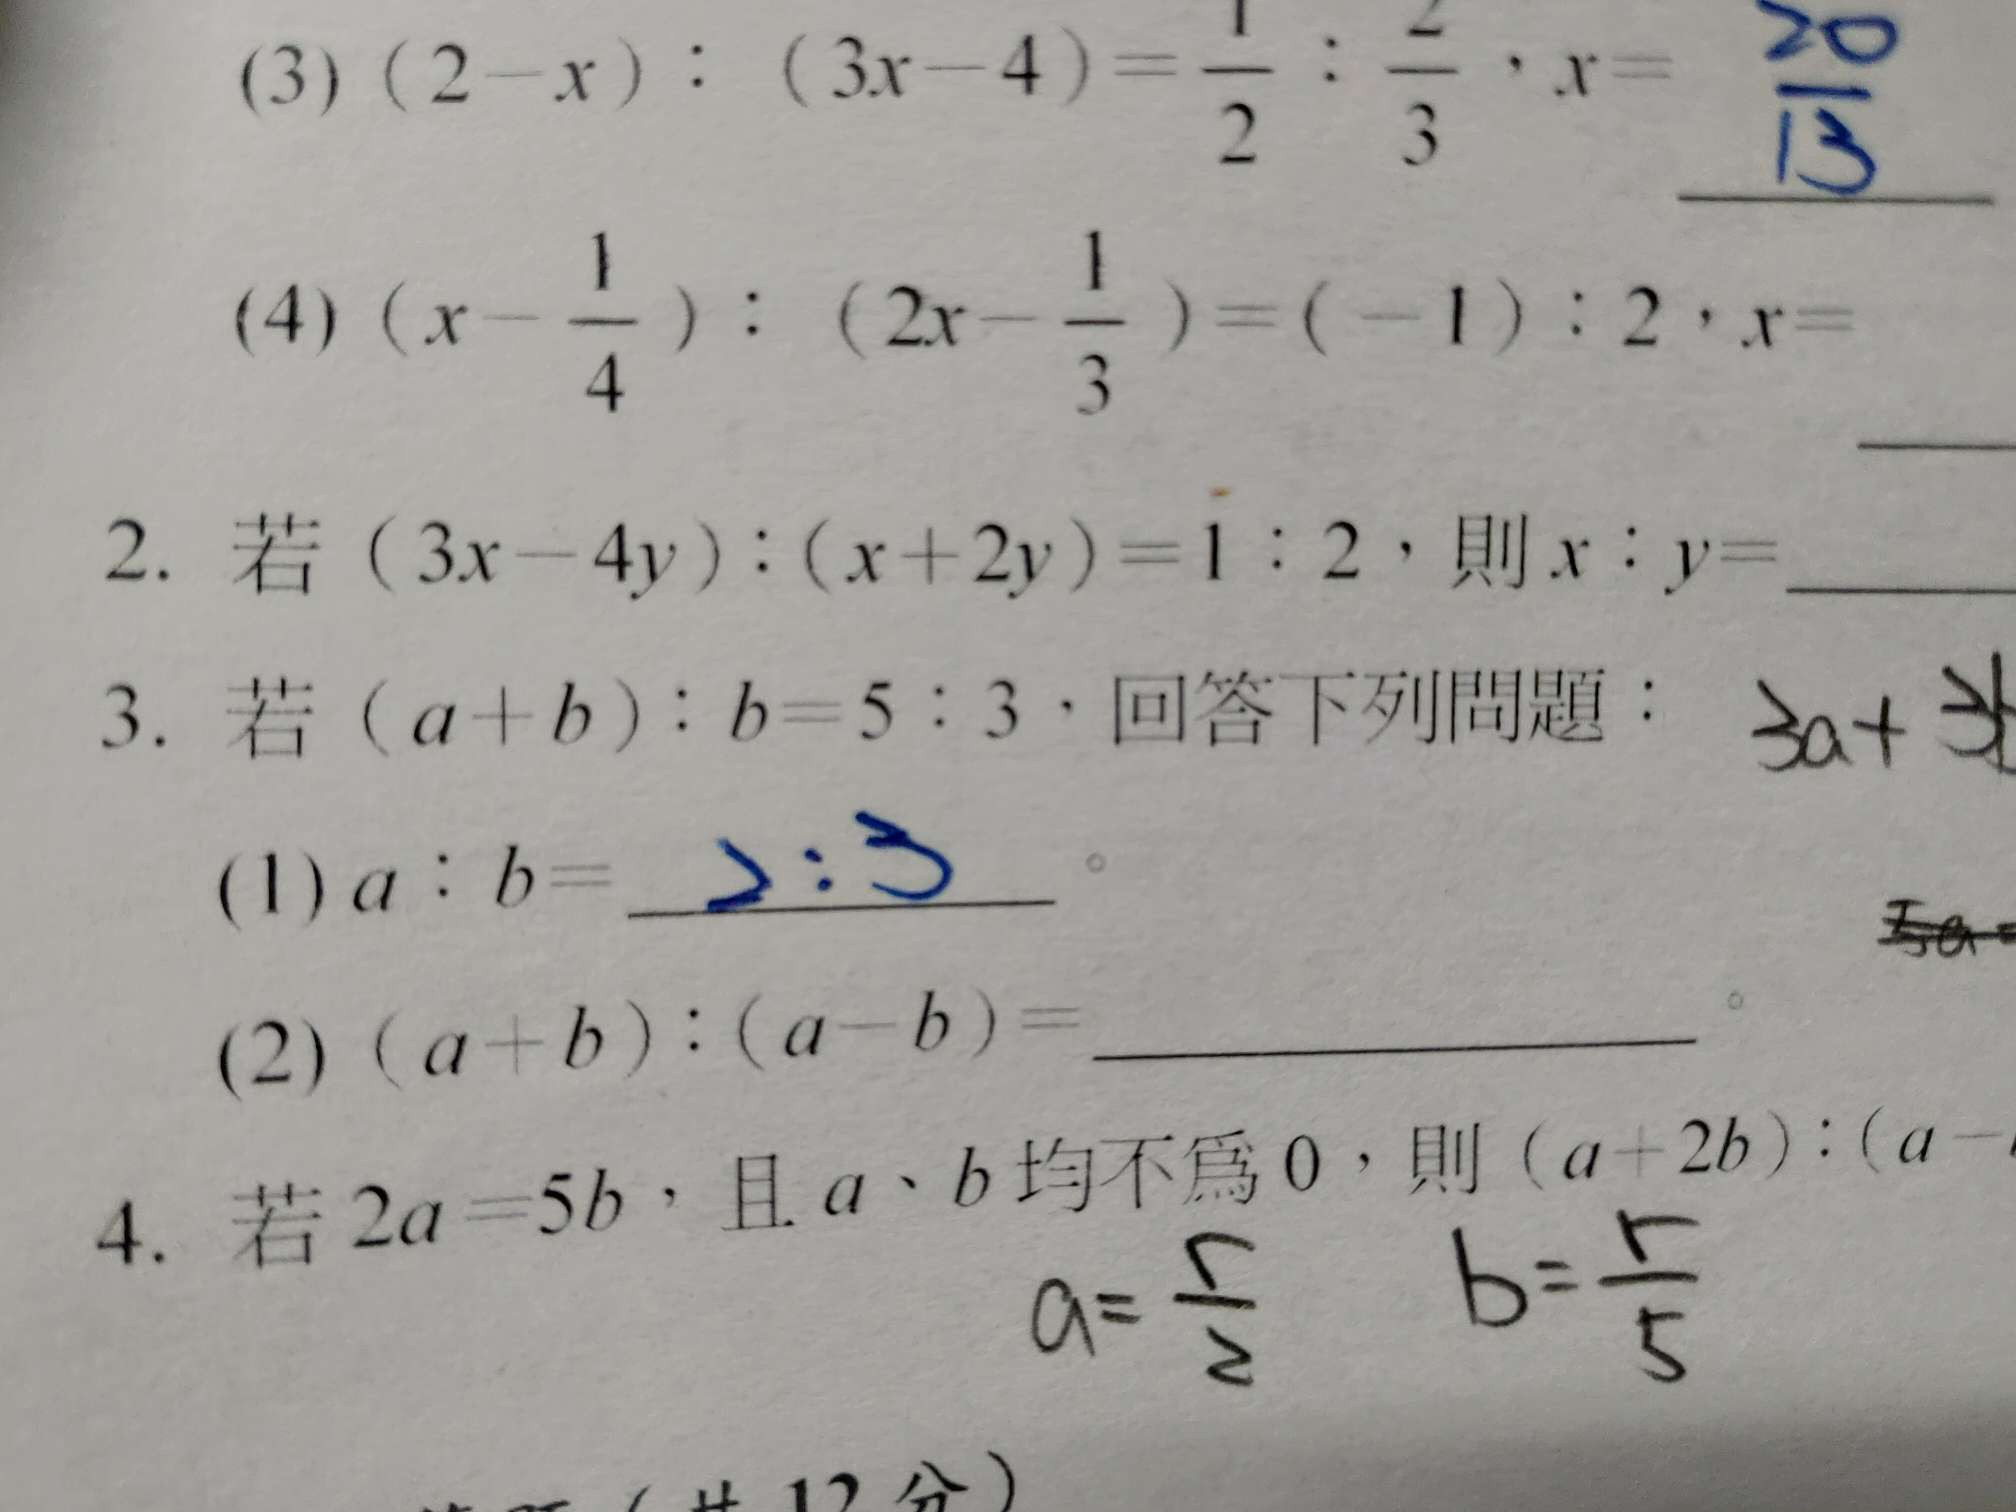 (3) (2-x):(3x-4)=1/2:2/3,x= 20/13
(4) (x-1/4):(2x-1/3)=(-1):2,x=
2. 若(3x-4y):(x+2y)=1:2,則x:y=
3. 若(a+b):b=5:3,回答下列問題: 3a+3b
(1) a:b= 2:3 。
5a=
(2) (a+b):(a-b)= 。
4. 若2a=5b,且a、b均不為0,則(a+2b):(a-
a=r/2 b=r/5
(共12分)